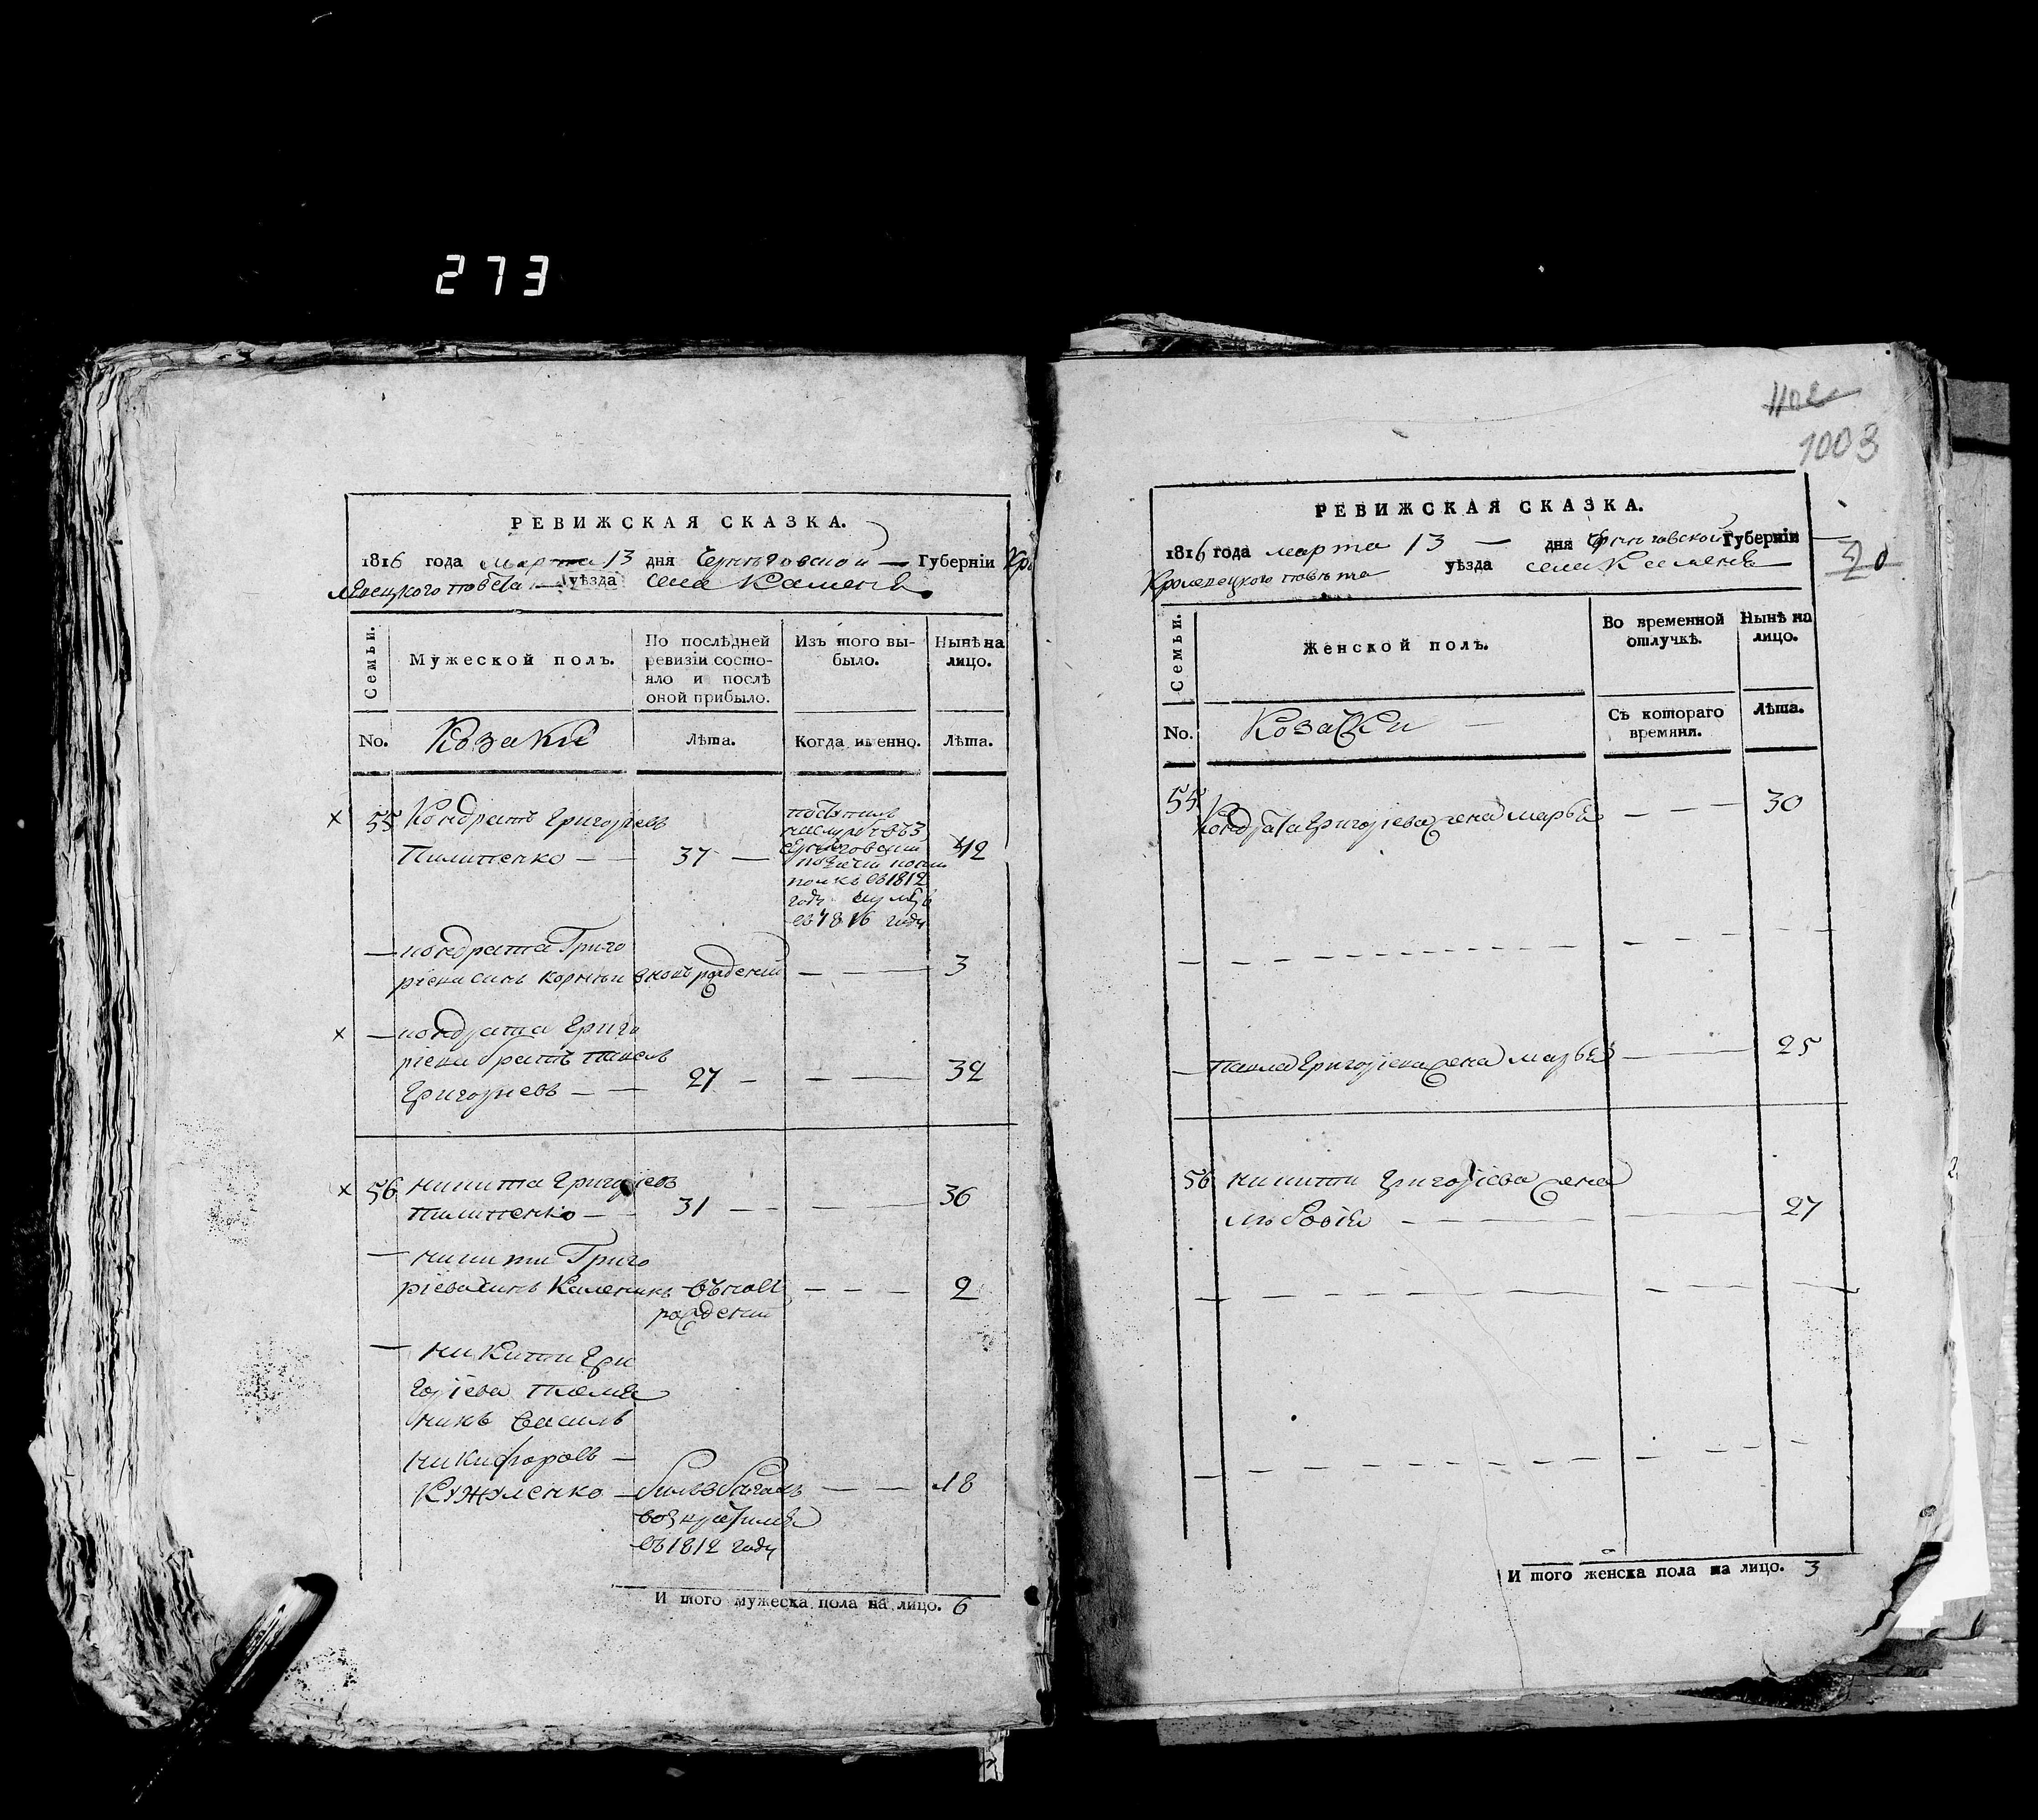 273
РЕВИЖСКАЯ СКАЗКА.
1816 года марта 13 дня Черниговской — Губерніи Кро
левецкого повета — уѣзда села Каменя
Семьи.
Мужеской полъ.
По послѣдней
ревизіи состо-
яло и послѣ
оной прибыло.
Изъ того вы-
было.
Нынѣ на
лицо.
No.
Козаки
Лѣта.
Когда именно.
Лѣта.
55 Кондратъ Григоріевъ
Пилипенко — — 37 — 42
поступилъ
Черниговский
полкъ въ 1812
году
въ 1816 году
— кондрата Григо
ріева синъ корнѣй вновь рожденій — — — 3
— кондрата Григо
ріева братъ павелъ
Григоріевъ — — 27 — — — — 32
56 никита Григоріевъ
пилипенко — — 31 — — — — 36
— никити Григо
ріева синъ Каленикъ въновь — — — 2
рожденій
— никити Гри
горіева племя
никъ василь
никифоровъ —
Кужуленко — билъ въ бегахъ — — — 18
возвратился
въ 1812 году
И того мужеска пола на лицо. 6
1003
РЕВИЖСКАЯ СКАЗКА.
1816 года марта 13 — дня Черниговской Губерніи —
Кролевецкого повѣта уѣзда села Каменя
20
Семьи.
Женской полъ.
Во временной
отлучкѣ.
Нынѣ на
лицо.
No.
Козачки —
Съ котораго
времяни.
Лѣта.
55 Кондрата Григоріева жена марья — — — 30
— павла Григоріева жена марья — — 25
56 никити Григоріева жена
— — — 27
И того женска пола на лицо. 3